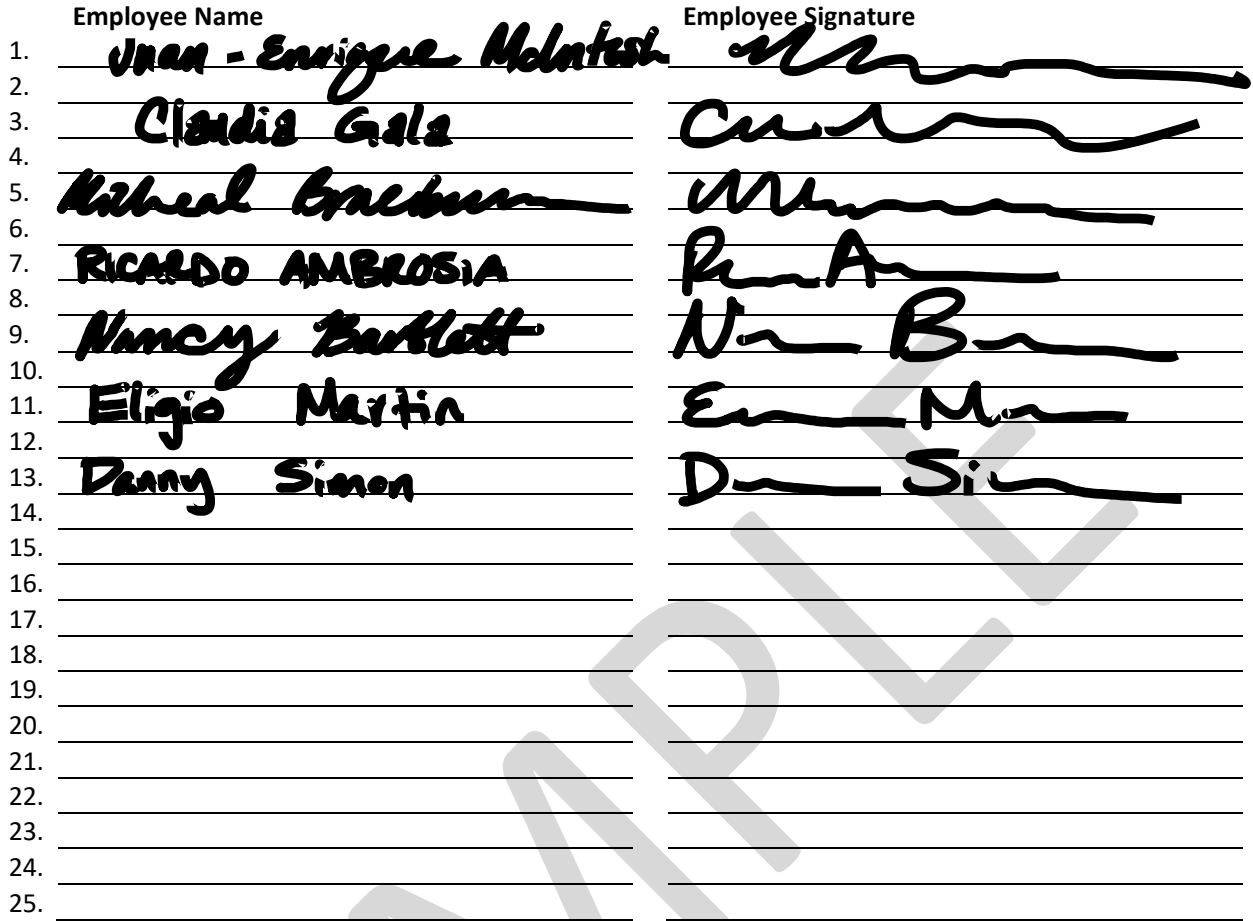 Employee Name Employee Signature
1. Juan - Enrique McIntosh
2.
3. Claudia Gala
4.
5. Micheal
6.
7. RICARDO AMBROSIA
8.
9. Nancy Bartlett
10.
11. Eligio Martin
12.
13. Danny Simon
14.
15.
16.
17.
18.
19.
20.
21.
22.
23.
24.
25.
MPLE